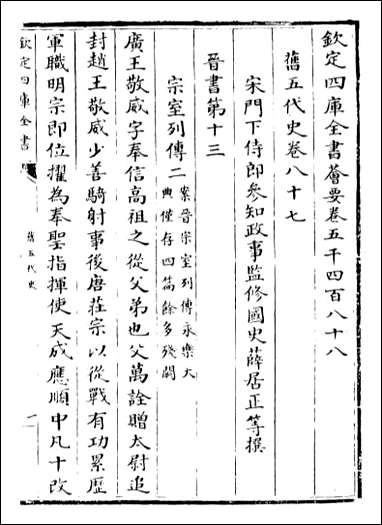 欽定四庫全書薈要卷五千四百八十八
舊五代史卷八十七
宋門下侍郎參知政事監修國史薛居正等撰
晉書第十三
宗室列傳二
案晉宗室列傳永樂大
典僅存四篇餘多殘闕
廣王敬威字奉信高祖之從父弟也父萬詮贈太尉追
封趙王敬威少善騎射事後唐莊宗以從戰有功累歷
軍職明宗即位擢為奉聖指揮使天成應順中凡十改
欽定四庫全書
舊五代史
一